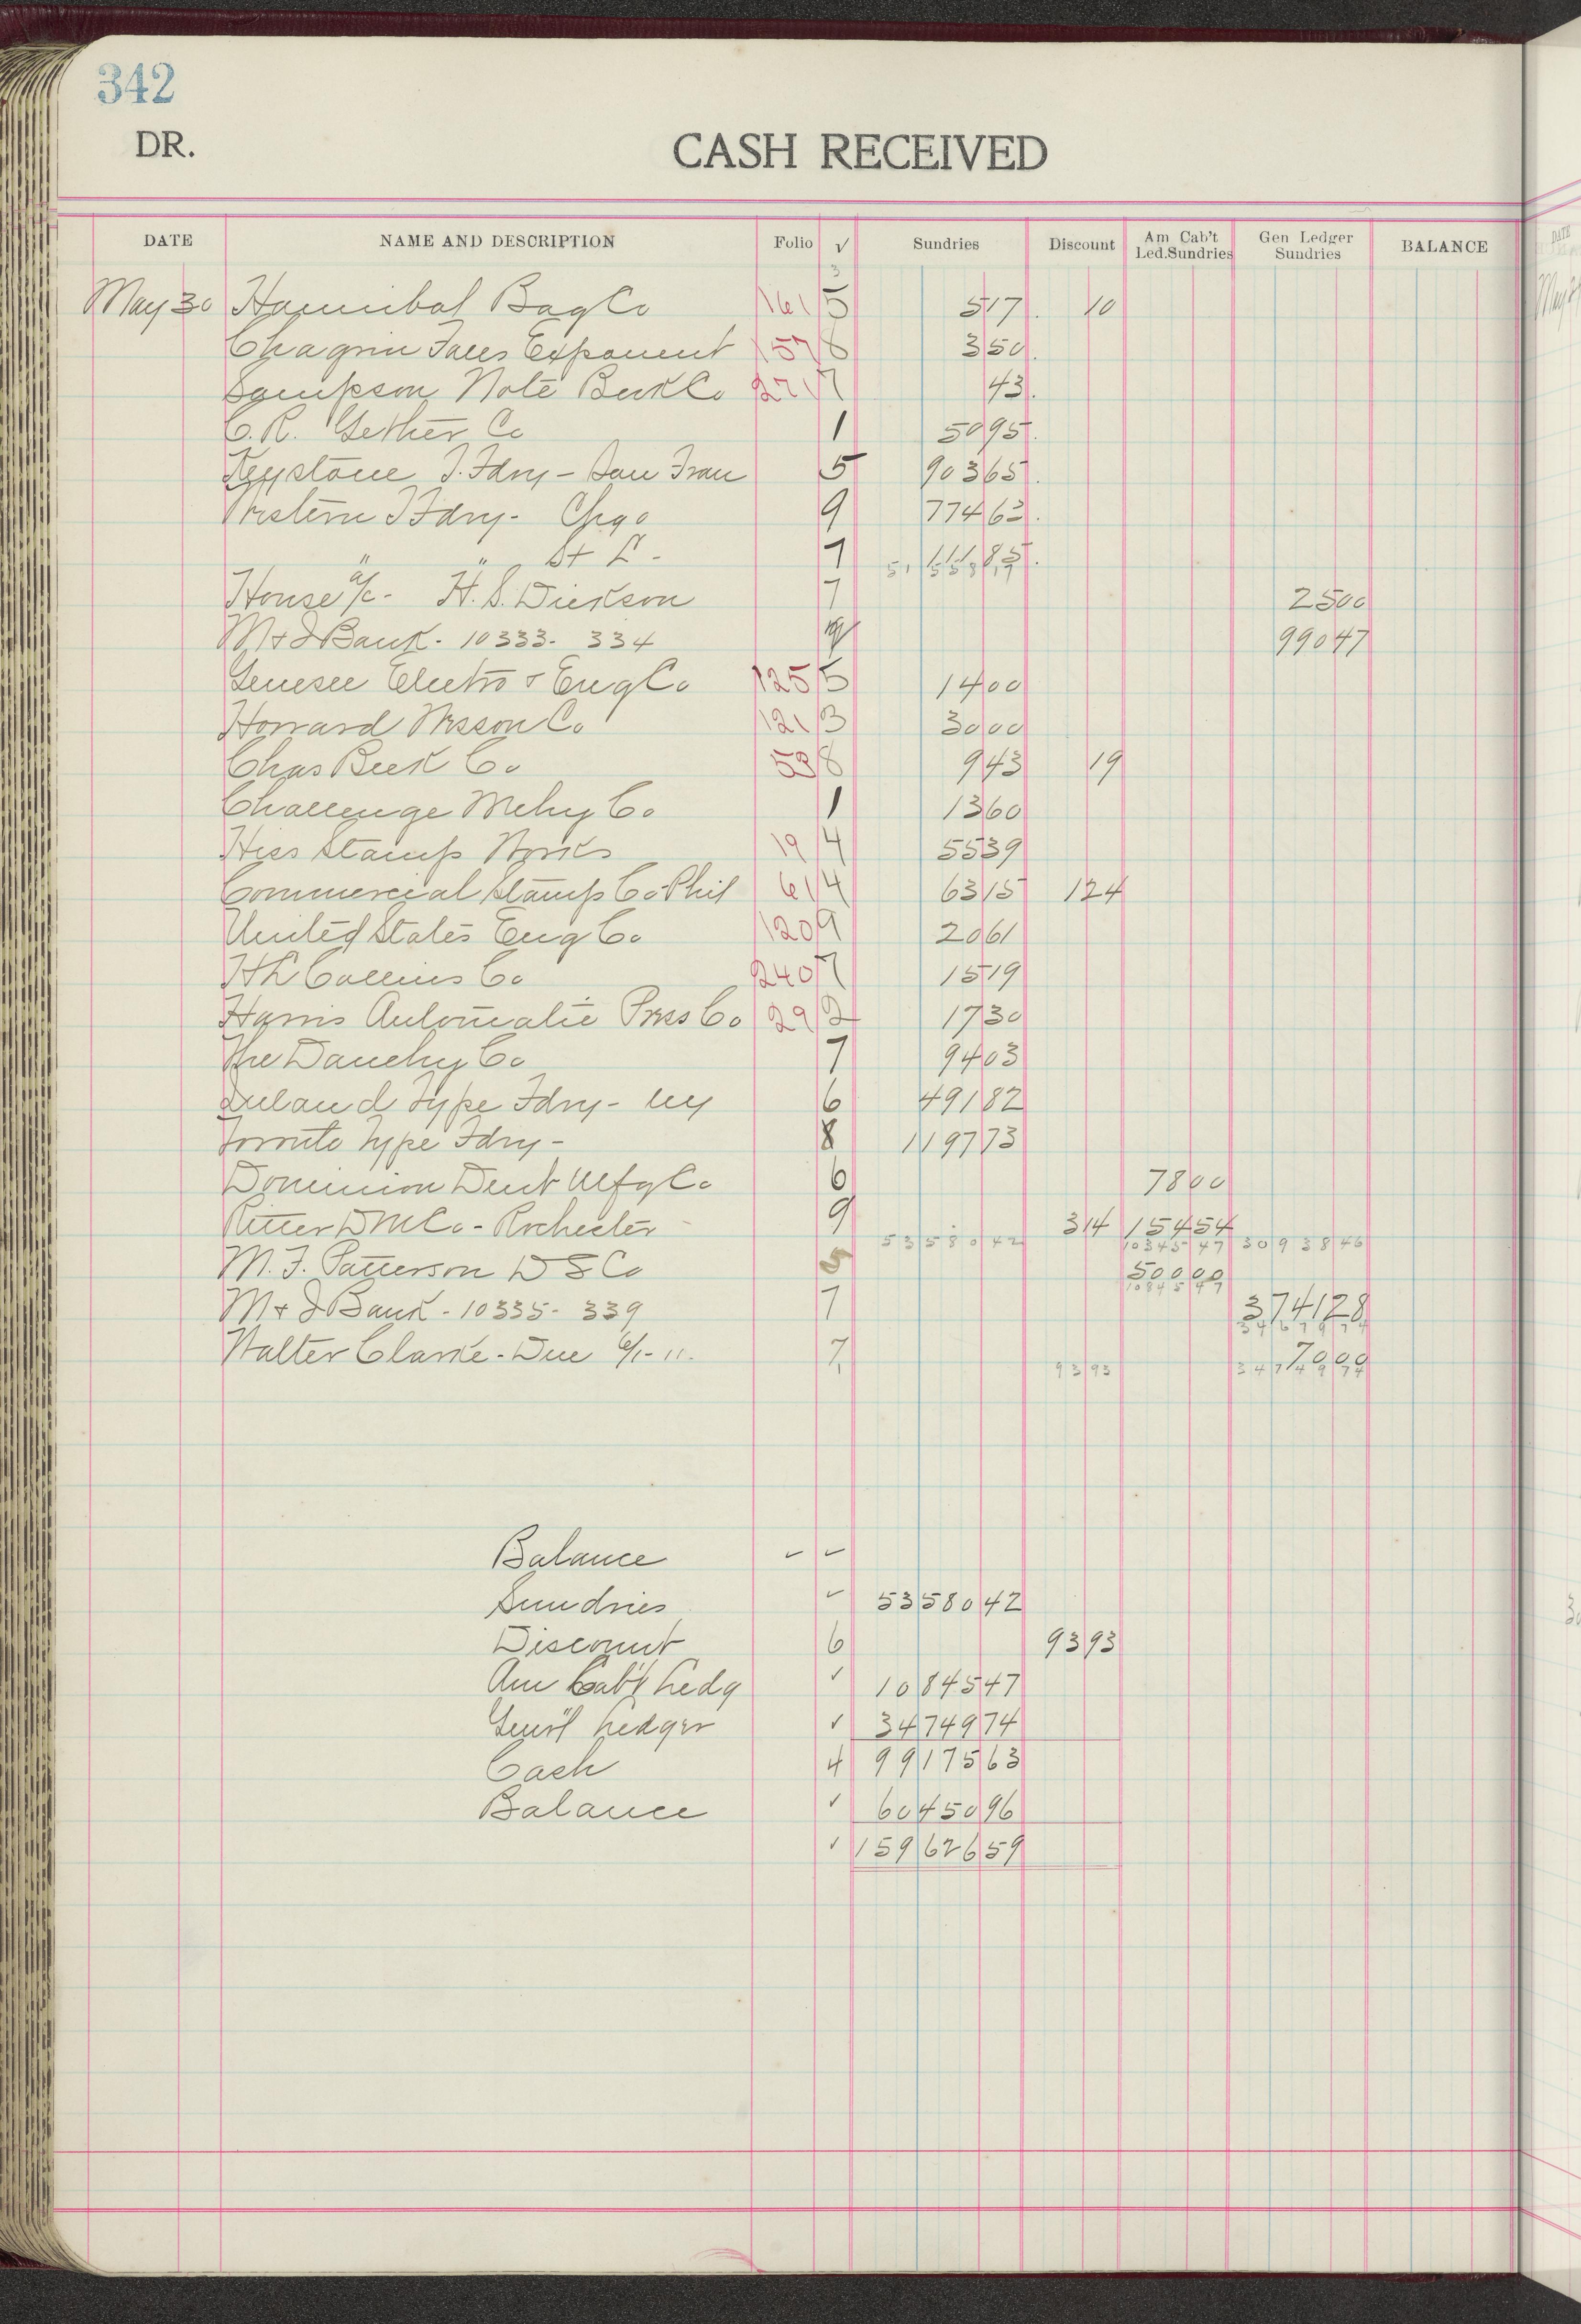 342
DR.
CASH RECEIVED
DATE NAME AND DESCRIPTION Folio √ Sundries Discount Am Cab't Led.Sundries Gen Ledger Sundries BALANCE
3
May 30 Hannibal Bag Co 161 5 517 10
Chagrin Falls Exponent 157 8 350
Sampson Note Book Co 271 7 43
C. R. Gether Co 1 5095
Keystone T. Fdry - San Fran 5 90365
Western T Fdry - Chgo 9 77463
" " St L - 7 11185
House a/c - H. S. Dickson 7 2500
M & J Bank - 10333 - 334 99047
Genesee Electro & Eng Co 125 5 1400
Howard Wesson Co 121 3 3000
Chas Beck Co 53 8 943 19
Challenge Mchy Co 1 1360
Hiss Stamp Works 19 4 5539
Commercial Stamp Co - Phil 61 4 6315 124
United States Eng Co 120 9 2061
H L Collins Co 240 7 1519
Harris Automatic Press Co 29 2 1730
The Dauchy Co 7 9403
Inland Type Fdry - NY 6 49182
Toronto Type Fdry - 8 119773
Dominion Dent Mfg Co 6 7800
Ritter D M Co - Rochester 9 314 15454
5358042 1034547 3093846
M. F. Patterson D S Co 5 50000
1084547
M & J Bank - 10335 - 339 7 374128
3467974
Walter Clarke - Due 6/1 - 11. 7 7000
9393 3474974
Balance ✓ ✓
Sundries ✓ 5358042
Discount 6 9393
Am Cab't Ledg ✓ 1084547
Gen'l Ledger ✓ 3474974
Cash 4 9917563
Balance ✓ 6045096
✓ 15962659